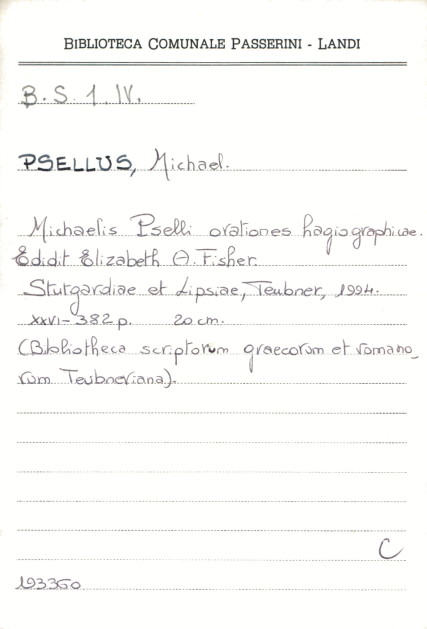 BIBLIOTECA COMUNALE PASSERINI - LANDI
B. S. 1. IV.
PSELLUS, Michael.
Michaelis Pselli orationes hagiographicae.
Edidit Elizabeth A. Fisher
Stutgardiae et Lipsiae, Teubner, 1994.
XXVI-382 p. 20 cm.
(Bibliotheca scriptorum graecorum et romano_
rum Teubneriana).
C
193360